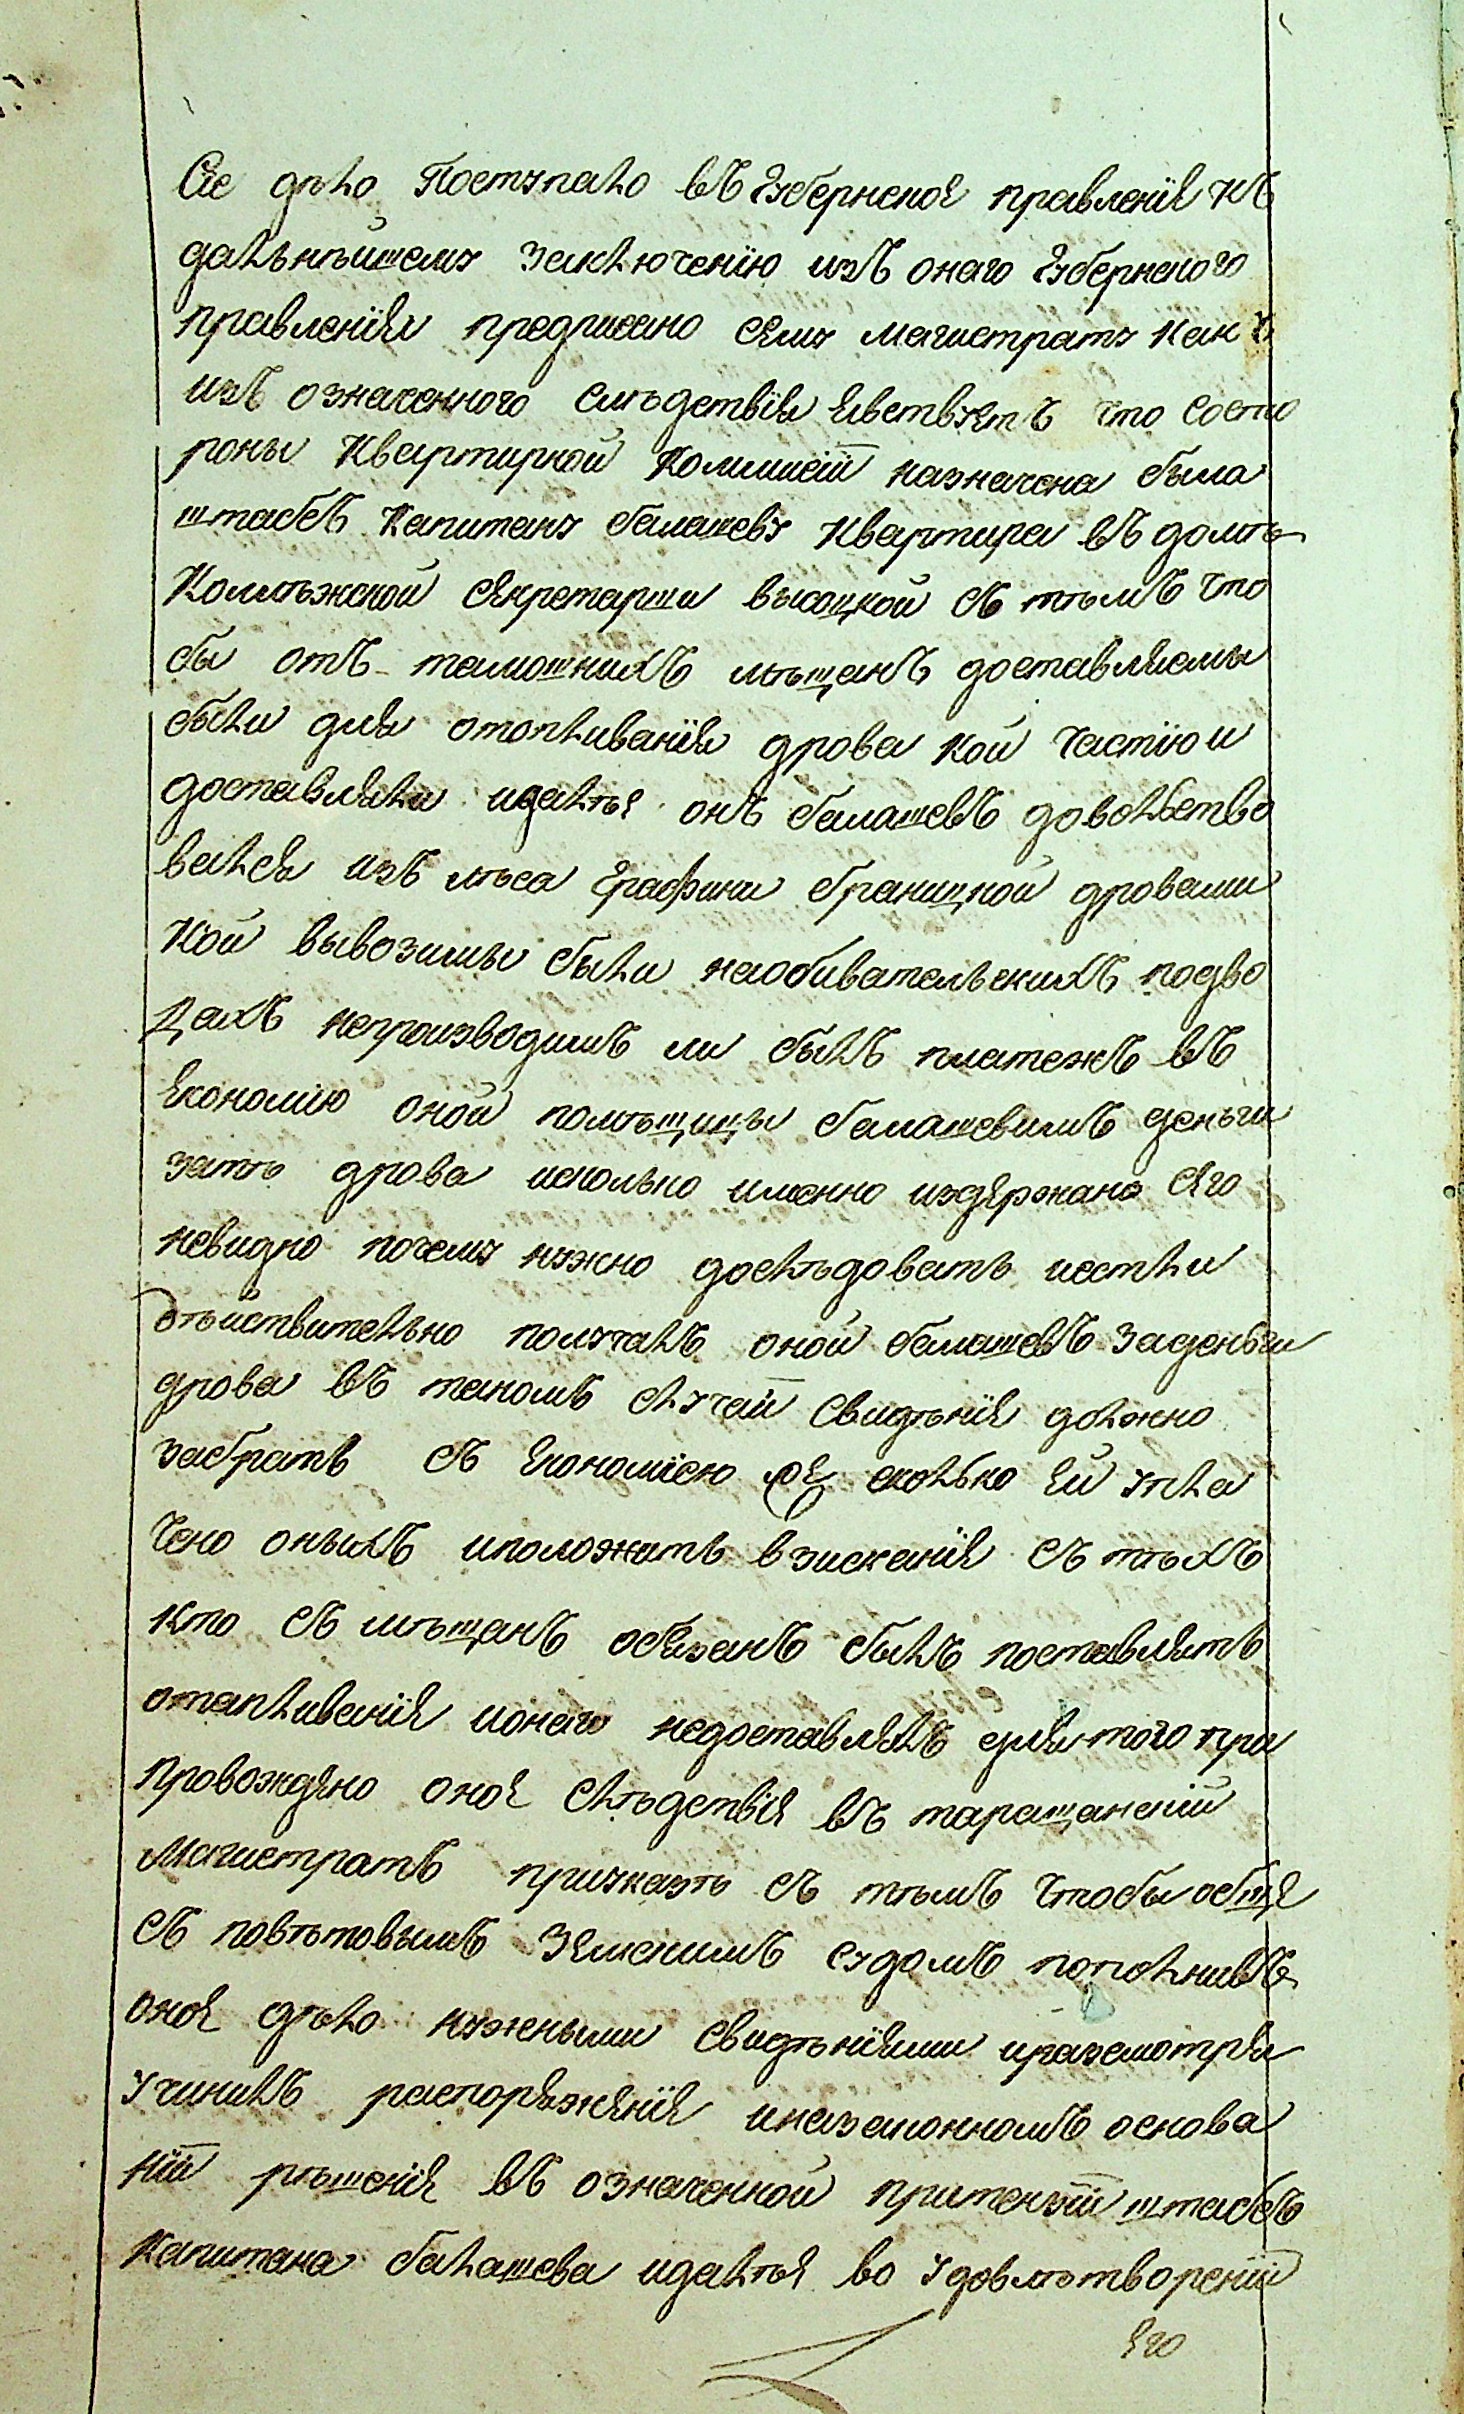 Сіе дѣло Поступало въ Губернское правленіе къ
далѣнѣйшему заключенію изъ онаго Губернского
правленія предписано сему магистрату какъ
изъ означенного слѣдствія явствуетъ что состо
роны Квартирной Коммисіи назначена была
штабъ Капитану балашеву Квартира въ домѣ
Колѣжской секретарши высоцкой съ тѣмъ что
бы отъ тамошнихъ мѣщанъ доставляемы
были для отопливанія дрова кои частію и
доставляли идалѣе онъ балашевъ доволѣство
вался изъ лѣса Графини браницкой дровами
кои вывозимы были наобивательскихъ подво
дахъ непроизводимъ ли былъ платежъ въ
Економію оной помѣщицы балашевимъ деньги
затѣ дрова исколько именно издержано сего
невидно почему нужно дослѣдовать иестли
дѣйствителѣно получалъ оной балашевъ заденьги
дрова въ такомъ случаи свидѣніе должно
забрать съ Економіею сколько ей упла
чено оныхъ иположить взисканіе съ тѣхъ
кто съ мѣщанъ обязанъ былъ поставлять
отапливаніе ионаго недоставлялъ для того пра
провождено оное слѣдствіе въ таращанскій
Магистратъ приуказѣ съ тѣмъ чтобы обще
съ повѣтовымъ Земскимъ судомъ пополнивъ
оное дѣло нужными свидѣніями иразсмотря
учинилъ распоряженіе иназаконномъ основа
ніи рѣшеніе въ означенной притензіи штабъ
Капитана балашева идалѣе во удовлѣтвореніи
его